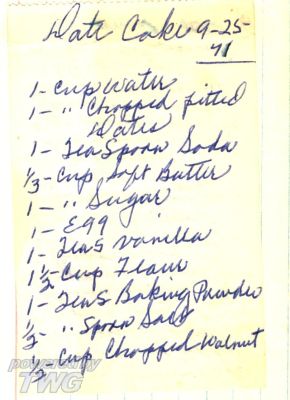 Date Cake 9-25-
71
1- Cup Water
1- " Chopped pitted
Dates
1- Tea Spoon Soda
1/3- Cup Soft Butter
1- " Sugar
1- Egg
1- Teas Vanilla
1 1/2- Cup Flour
1- Teas Baking Powder
1/2- " Spoon Salt
1/2- Cup Chopped Walnut
powered by
TWG